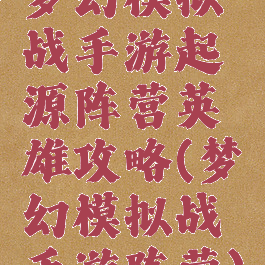 梦幻模拟
战手游起
源阵营英
雄攻略(梦
幻模拟战
手游阵营)